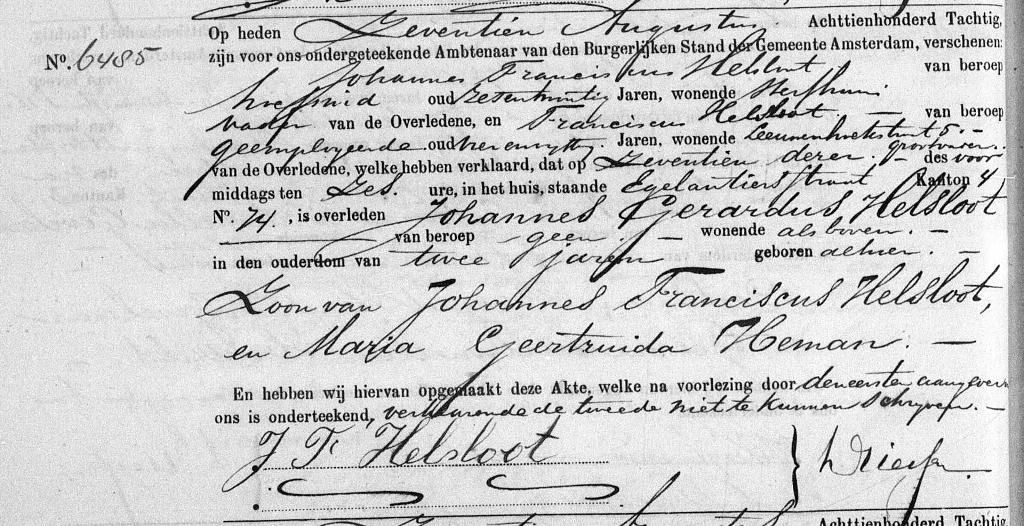 Op heden Zeventien Augustus Achttienhonderd Tachtig,
No. 6485 zijn voor ons ondergeteekende Ambtenaar van den Burgerlijken Stand der Gemeente Amsterdam, verschenen:
Johannes Franciscus Helsloot van beroep
oud Jaren, wonende
vader van de Overledene, en Franciscus Helsloot — van beroep
geemployeerde oud Jaren, wonende grootvader
van de Overledene, welke hebben verklaard, dat op Zeventien dezer — des voor
middags ten Zes. ure, in het huis, staande Egelantiersstraat Kanton 4
No. 74, is overleden Johannes Gerardus Helsloot
van beroep geen. — wonende als boven. —
in den ouderdom van twee jaren geboren alhier. —
Zoon van Johannes Franciscus Helsloot,
en Maria Geertruida Heman. —
En hebben wij hiervan opgemaakt deze Akte, welke na voorlezing door den eersten aangever
ons is onderteekend, verklarende de tweede niet te kunnen schryven. —
J F Helsloot
Achttienhonderd Tachtig,